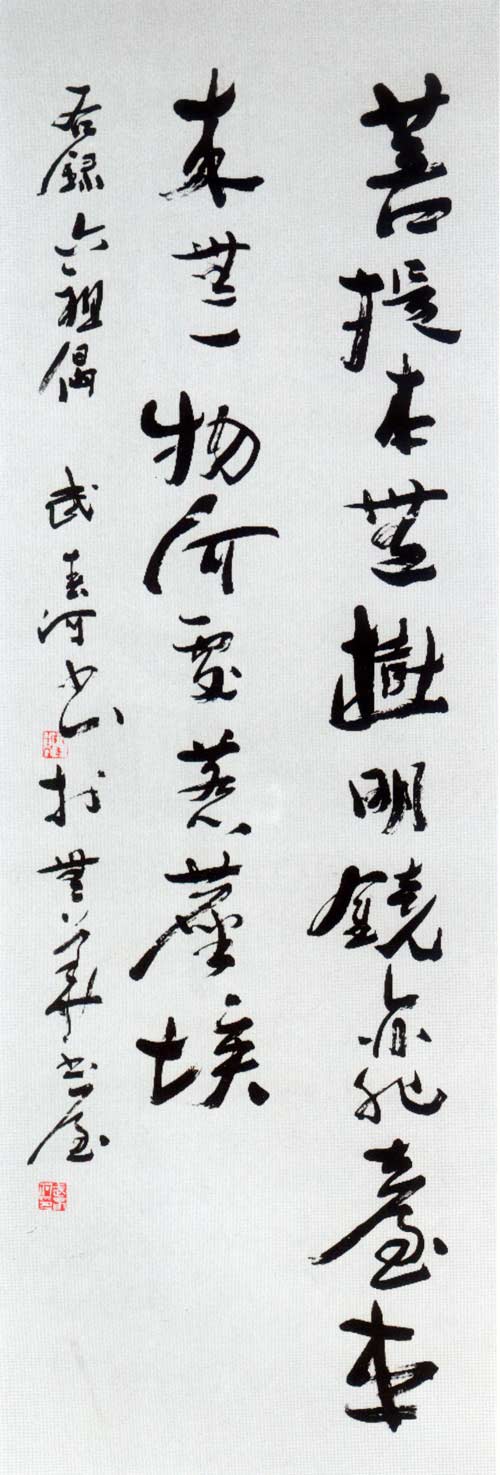 菩提本無樹明鏡亦非臺本
来無一物何處惹塵埃
右錄六祖偈 武春河書於無華書屋